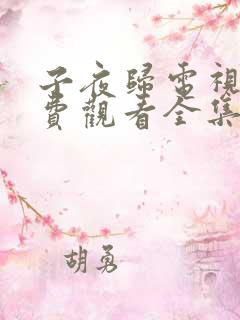 子夜歸電視
費觀看全集
胡勇